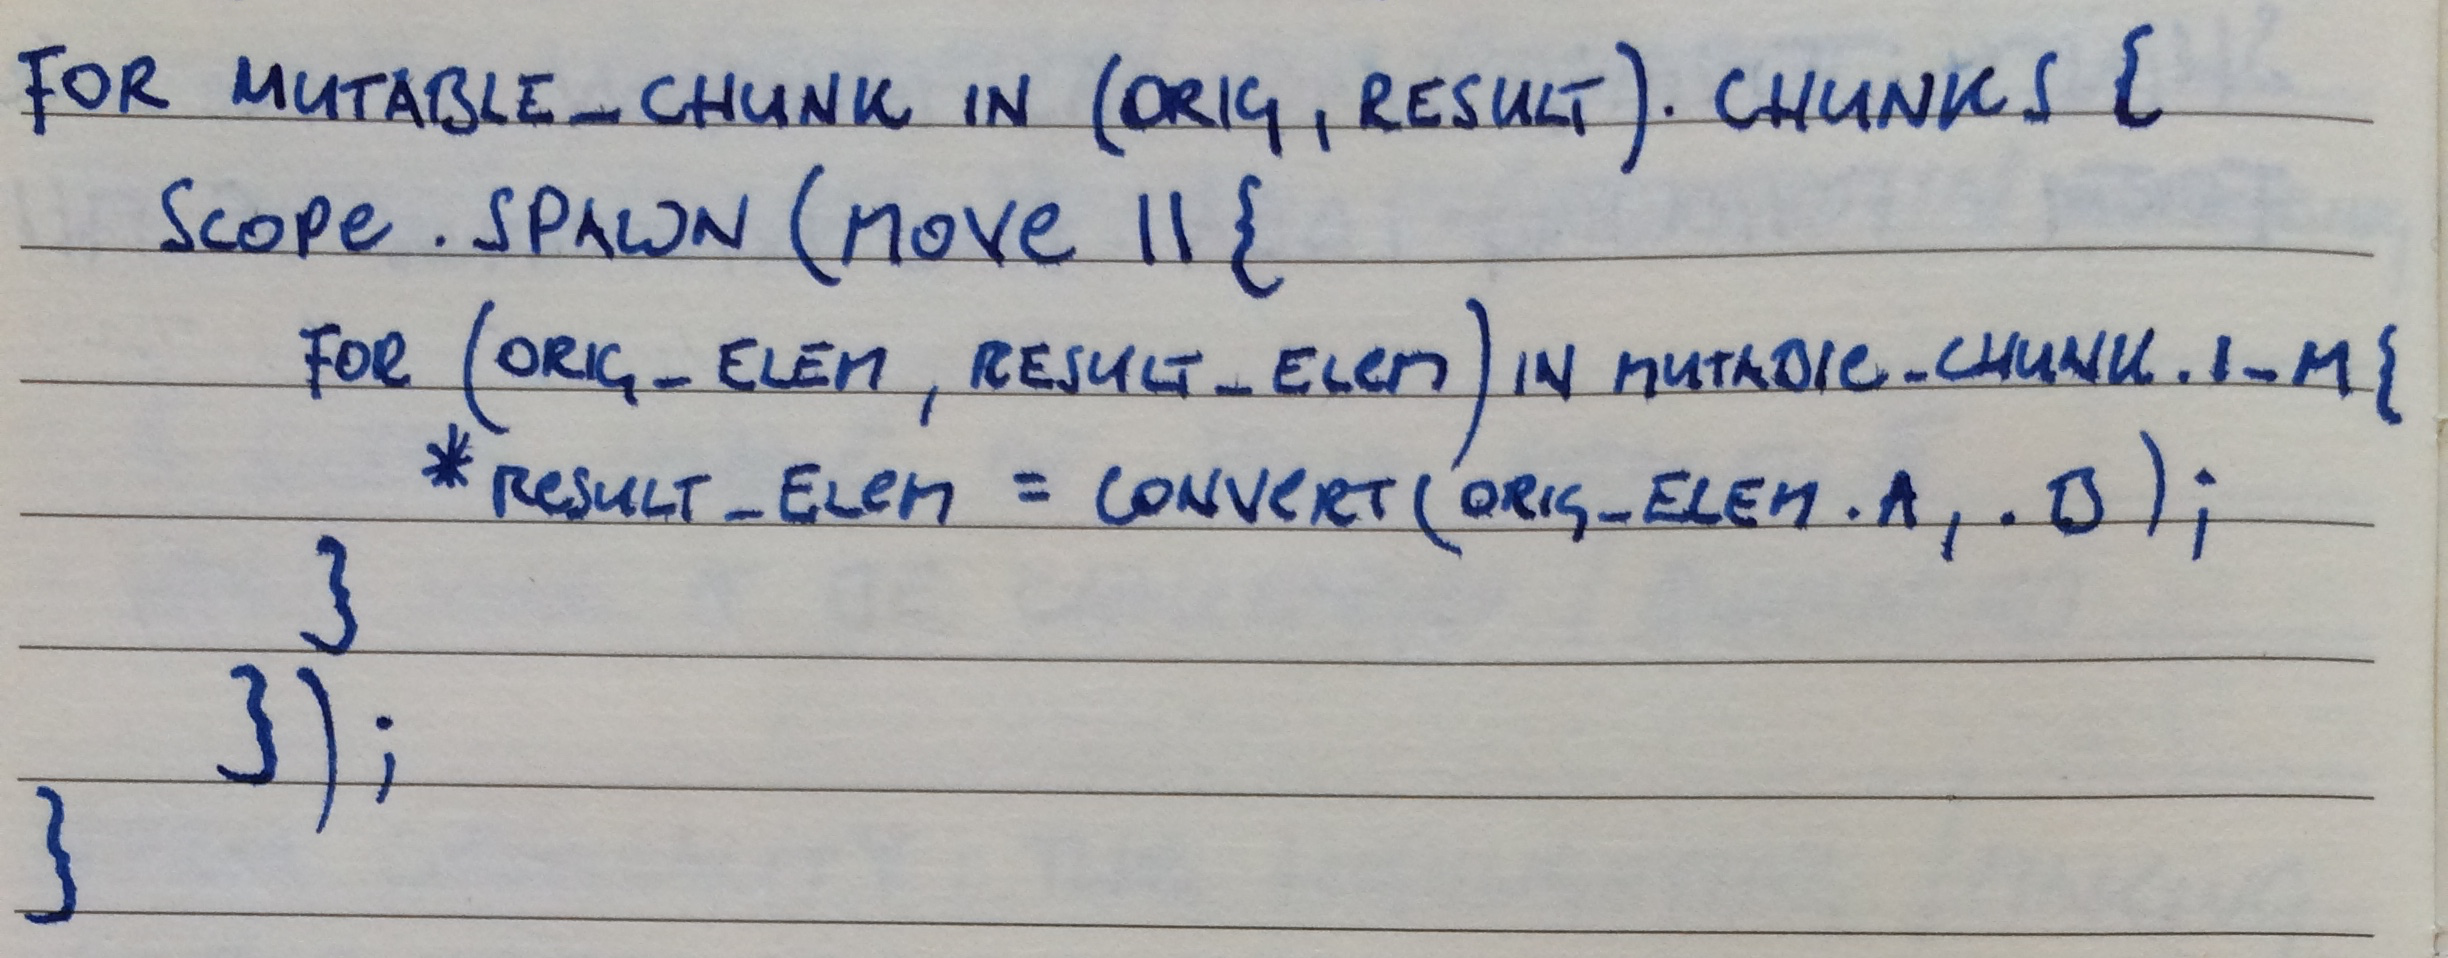 FOR MUTABLE_CHUNK IN (ORIG, RESULT). CHUNKS {
SCOPe . SPAWN (MOVe || {
FOR (ORIG_ELEM, RESULT_ELeM) IN MUTABLe_CHUNK.I_M{
*ReSULT_ELeM = CONVeRT(ORIG_ELEM.A, .B);
}
});
}